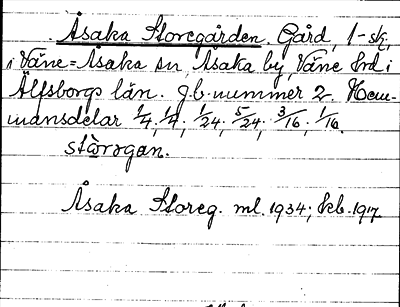 Åsaka Storegården. Gård, 1-sk,
i Väne-Åsaka sn, Åsaka by, Väne hrd i
Älfsborgs län. Jb. nummer 2. Hem-
mansdelar 1/4, 1/4, 1/24, 5/24, 3/16, 1/16.
stòrəgan.
Åsaka Storeg. ml. 1934; kb. 1917